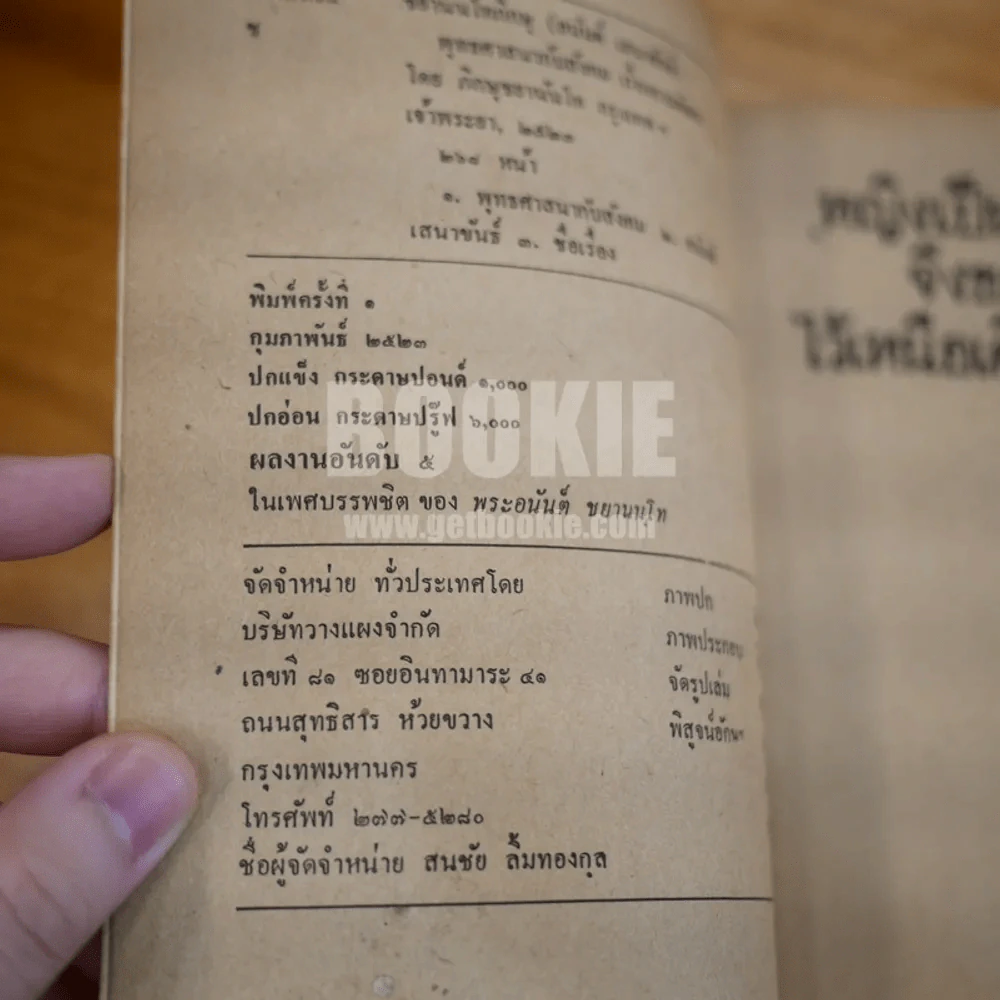 ช
พุทธศาสนากับสังคม
โดย ภิกษุชยานันโท กรุงเทพฯ
เจ้าพระยา, ๒๕๒๓
๒๖๘ หน้า
๑. พุทธศาสนากับสังคม ๒.
เสนาขันธ์ ๓. ชื่อเรื่อง
พิมพ์ครั้งที่ ๑
กุมภาพันธ์ ๒๕๒๓
ปกแข็ง กระดาษปอนด์ ๑,๐๐๐
ปกอ่อน กระดาษปรู๊ฟ ๖,๐๐๐
ผลงานอันดับ ๕
ในเพศบรรพชิต ของ พระอนันต์ ชยานนฺโท
จัดจำหน่าย ทั่วประเทศโดย
บริษัทวางแผงจำกัด
เลขที่ ๘๑ ซอยอินทามาระ ๔๑
ถนนสุทธิสาร ห้วยขวาง
กรุงเทพมหานคร
โทรศัพท์ ๒๗๗-๕๒๘๐
ชื่อผู้จัดจำหน่าย สนชัย ลิ้มทองกุล
ภาพปก
ภาพประกอบ
จัดรูปเล่ม
พิสูจน์อักษร
BOOKIE
www.getbookie.com